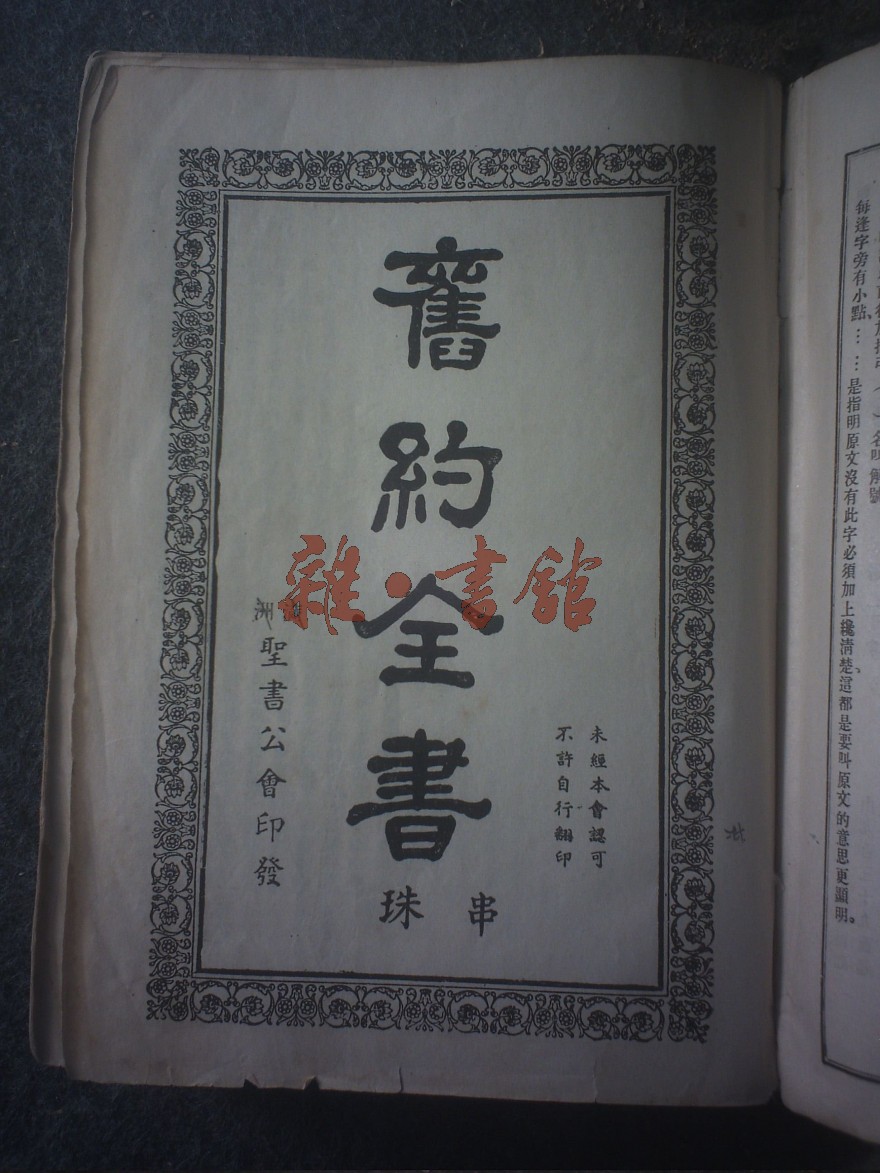 每逢字旁有小點、……是指明原文沒有此字必須加上纔清楚、這都是要叫原文的意思更顯明。
未經本會認可
不許自行翻印
舊約全書
串珠
洲聖書公會印發
雜·書館